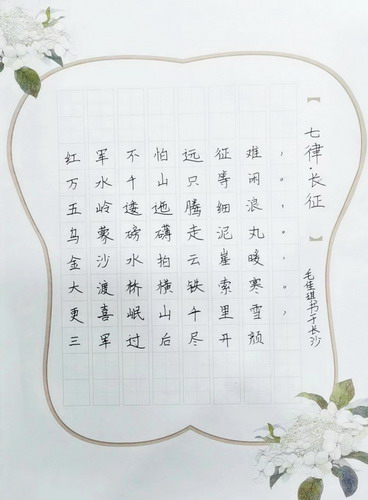 【七律·长征】
红军不怕远征难，
万水千山只等闲。
五岭逶迤腾细浪，
乌蒙磅礴走泥丸。
金沙水拍云崖暖，
大渡桥横铁索寒。
更喜岷山千里雪，
三军过后尽开颜
毛佳琪书于长沙